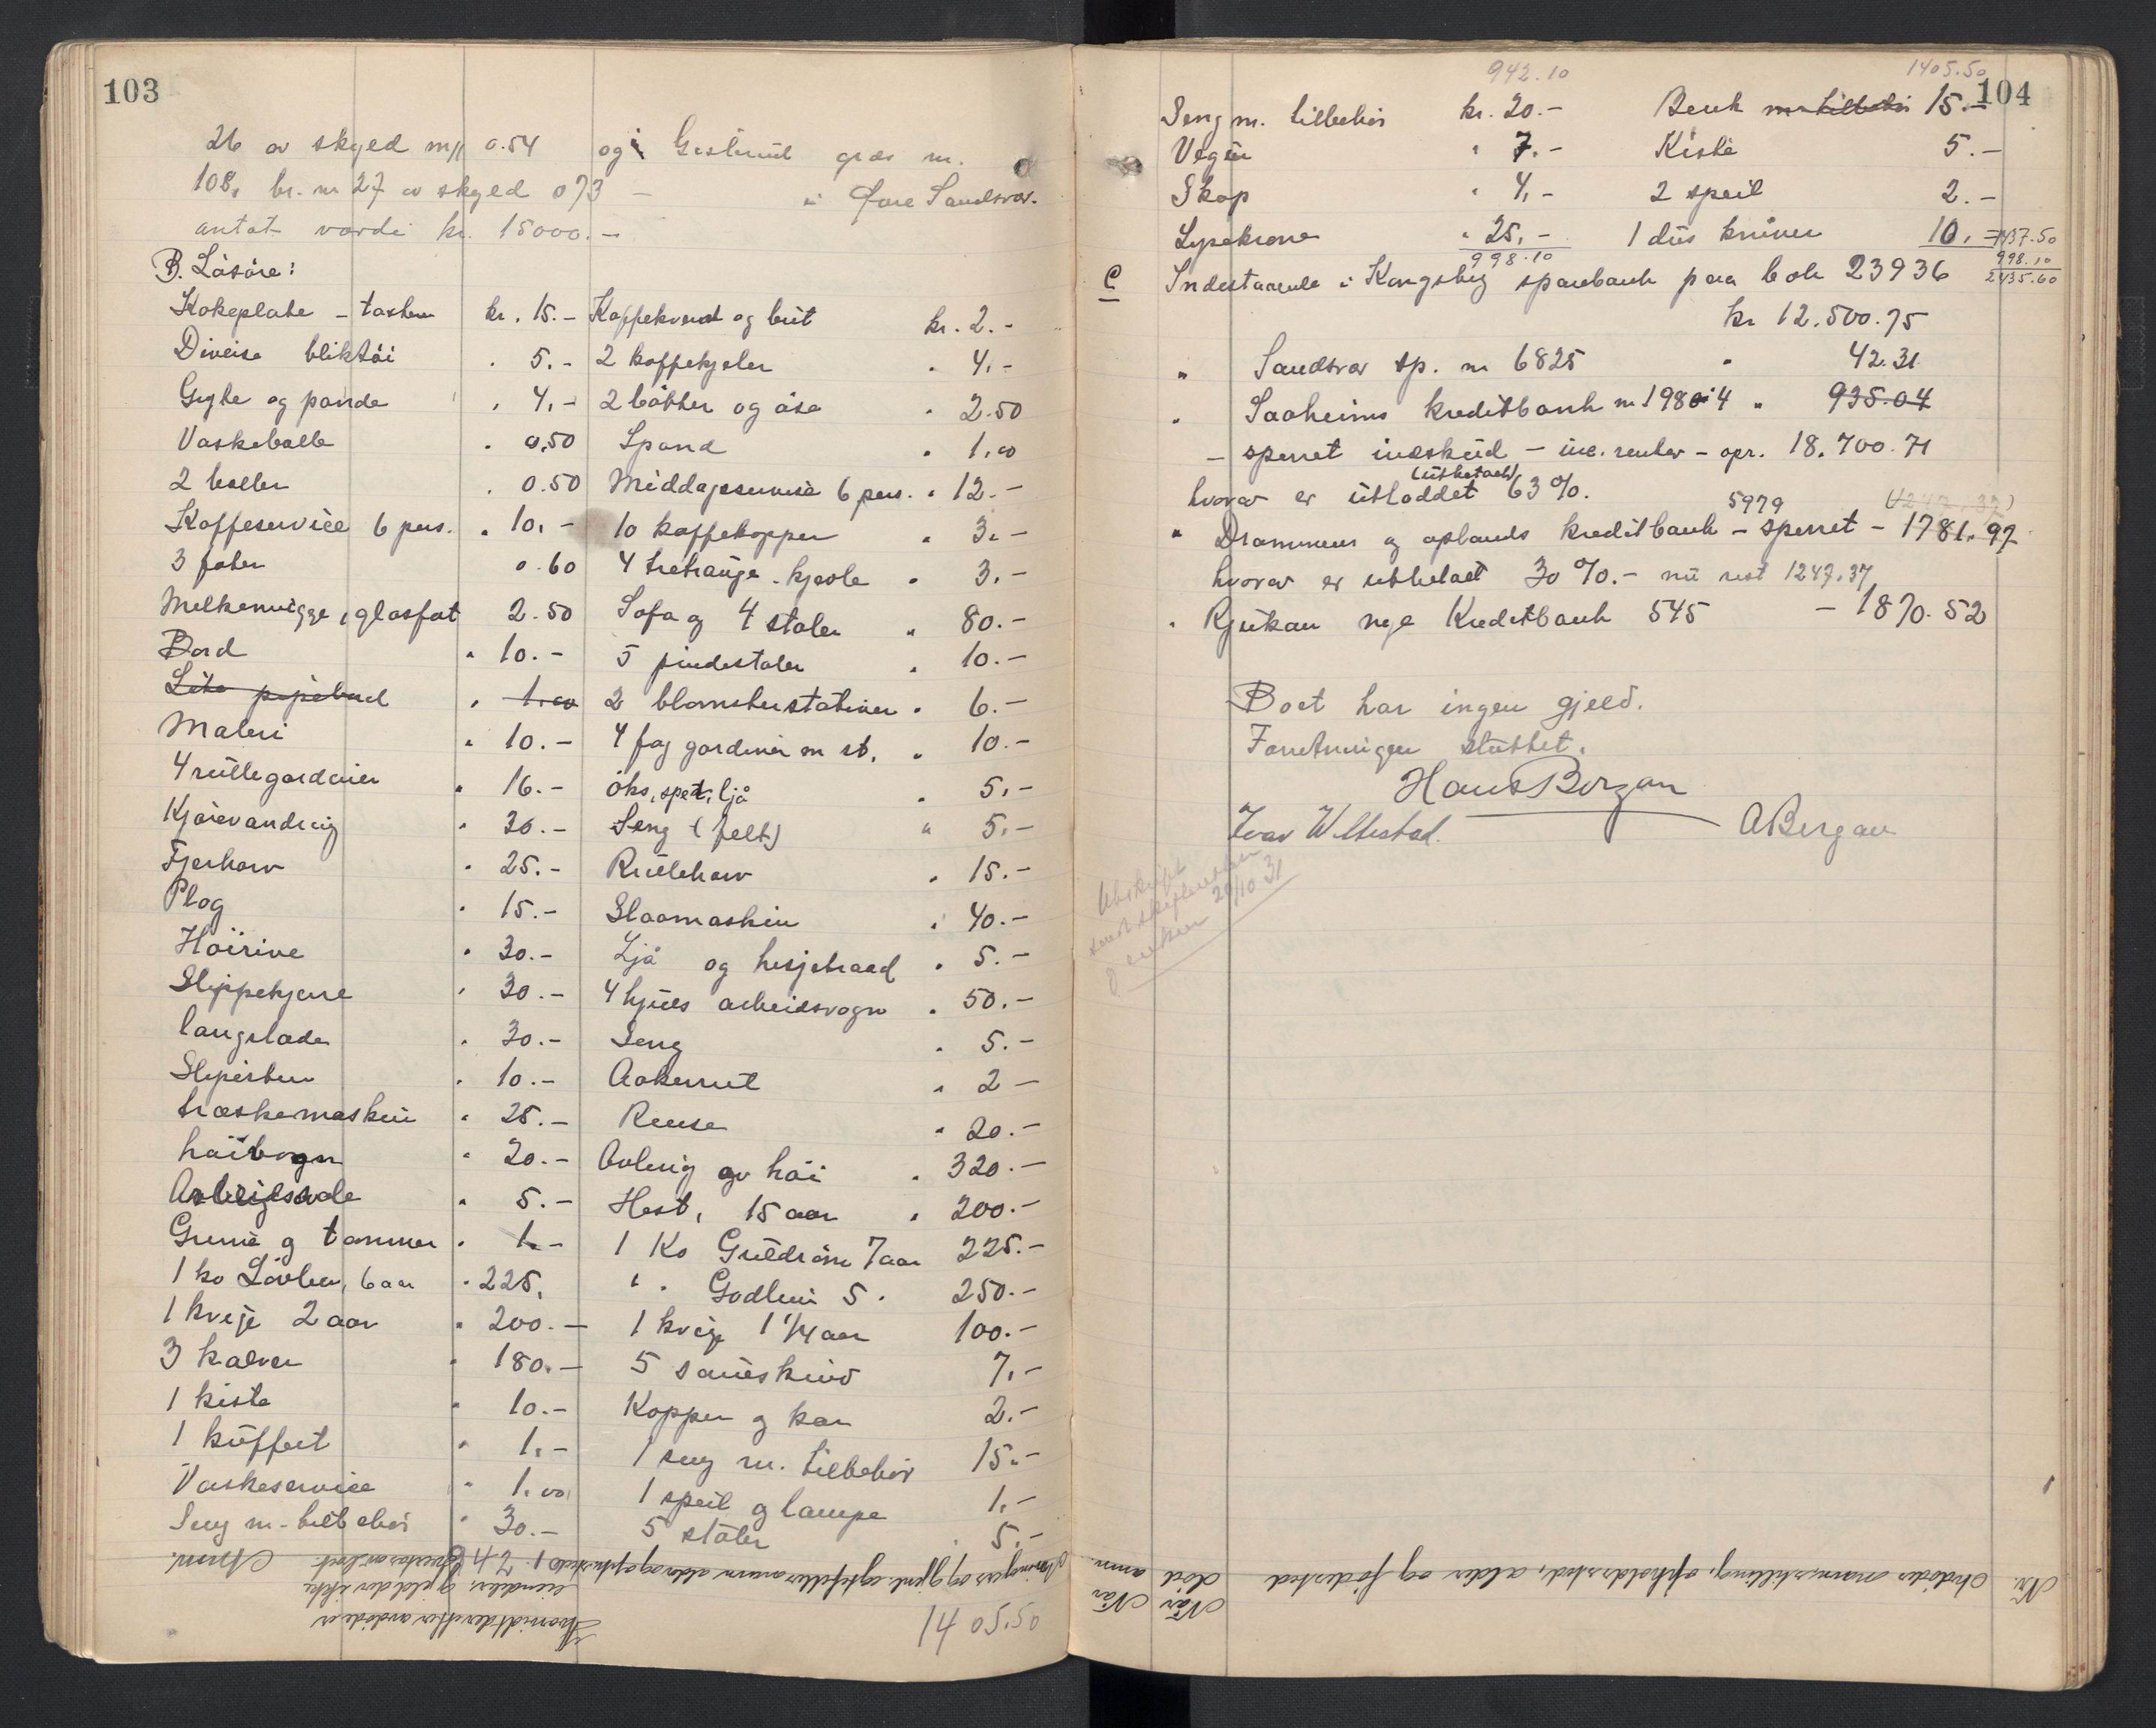 103
26 av skyld m/ 0.54 og i Gestrud grds nr.
108, br. nr 27 av skyld 073 — i Øvre Sandsvær.
antat værdi kr. 15000.—
B. Løsøre:
Kokeplate - tasker kr. 15.- Kaffekvern og brit kr. 2.-
Diverse bliktøi " 5.- 2 kaffekjeler " 4.-
Gryte og panne " 4.- 2 bøtter og øse " 2.50
Vaskeballe " 0.50 Spand " 1.00
2 baller " 0.50 Middagsservise 6 pers. " 12.-
Kaffeservice 6 pers. " 10.- 10 kaffekopper " 3.-
3 fater 0.60 4 tretrauge. kjevle " 3.-
Melkemugge, glasfat 2.50 Sofa og 4 stoler " 80.-
Bord " 10.- 5 pindestoler " 10.-
Lite pipebord " 1.00 2 blomsterstativer " 6.-
Maleri " 10.- 4 fag gardiner m st. " 10.-
4 rullegardiner " 16.- øks, spet, ljå " 5.-
Kjørevandring " 30.- Seng (felt) " 5.-
Fjerharv " 25.- Rulleharv " 15.-
Plog " 15.- Slaamaskin " 40.-
Høirive " 30.- Ljå og hesjetraad " 5.-
Slippekjerre " 30.- 4 hjuls arbeidsvogn " 50.-
langslæde " 30.- Seng " 5.-
Slipesten " 10.- Aakerrut " 2 -
træskemaskin " 25.- Rense " 20.-
høivogn " 20.- Avling av høi " 320.-
Arbeidssæle " 5.- Hest, 15 aar " 200.-
Grime og tømmer " 1.- 1 Ko Guldrøn 7 aar 225.-
1 ko Løvlin, 6 aar " 225. " " Godlin 5 " 250.-
1 kvige 2 aar " 200.- 1 kvige 1 1/4 aar 100.-
3 kalver " 180.- 5 saueskind 7.-
1 kiste " 10.- Kopper og kar 2.-
1 kuffert " 1.- 1 seng m. tilbehør 15.-
Vaskeservice " 1.00 1 speil og lampe 1.-
Seng m- tilbehør " 30.- 5 stoler " 5.-
1405.50
104
942.10 1405.50
Seng m. tilbehør kr. 20.- Benk m tilbehør 15.-
Vegur " 7.- Kiste 5.-
Skap " 4.- 2 speil 2.-
Lysekrone " 25.- 1 dus kniver 10.- 1437.50
998.10 998.10
C Indestaaende i Kongsberg sparebank paa bok 23936 2435.60
kr 12.500.75
" Sandsvær sp. nr 6825 " 42.31
" Saaheims kreditbank nr 19804 " 935.04
- sperret inskud - inc. renter - opr. 18.700.71
(utbetalt)
hvorav er utloddet 63%.
5979
" Drammens og oplands kreditbank - sperret - 1781.97
hvorav er utbetalt 30%.- nu rest 1247.37
" Rjukan nye Kreditbank 545 - 1870.52
Boet har ingen gjeld.
Forretningen sluttet.
Hans Bergan
Ivar Wettestad. A Bergan
Avskrift
sendt skifteretten
29/10 31
Nr. Avdødes navn, stilling, opholdssted, alder og fødested Når død Når anm.